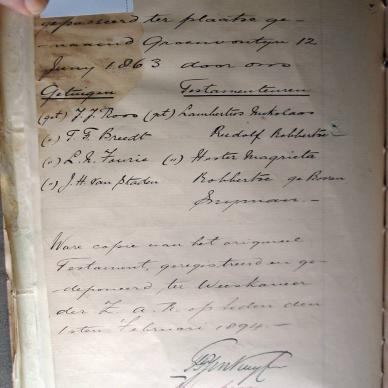 gepasseerd ter plaatse ge-
naamd Groenfontyn 12
Juny 1863 door ons
Getuigen Testamenteuren
(get) J. J. Roos (get) Lambertus Nikolaas
(„) T. F. Breedt Rudolf Robbertse
(„) L. N. Fourie („) Hester Magrieta
(„) J. H. van Staden Robbertse geboren
Snyman. —
Ware copie van het origineel
Testament, geregistreerd en ge-
deponeerd ter Weeskamer
der Z. A. R. op heden den
1sten Februari 1894. —